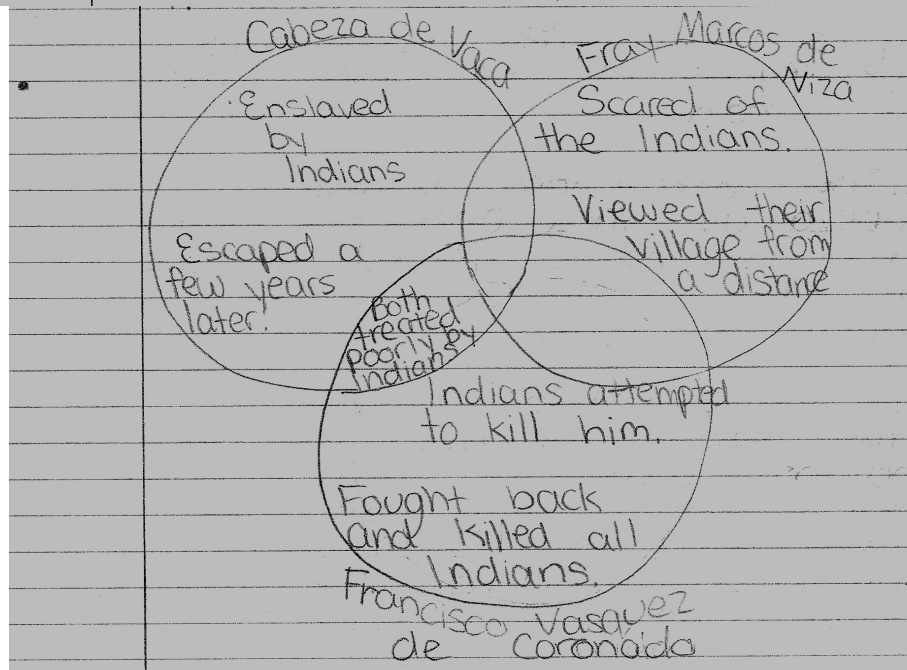 Cabeza de Vaca
Fray Marcos de Niza
Enslaved
by
Indians
Escaped a
few years
later.
Scared of
the Indians.
Viewed their
village from
a distance
Both
treated
poorly by
Indians
Indians attempted
to kill him.
Fought back
and killed all
Indians.
Francisco Vasquez
de Coronado